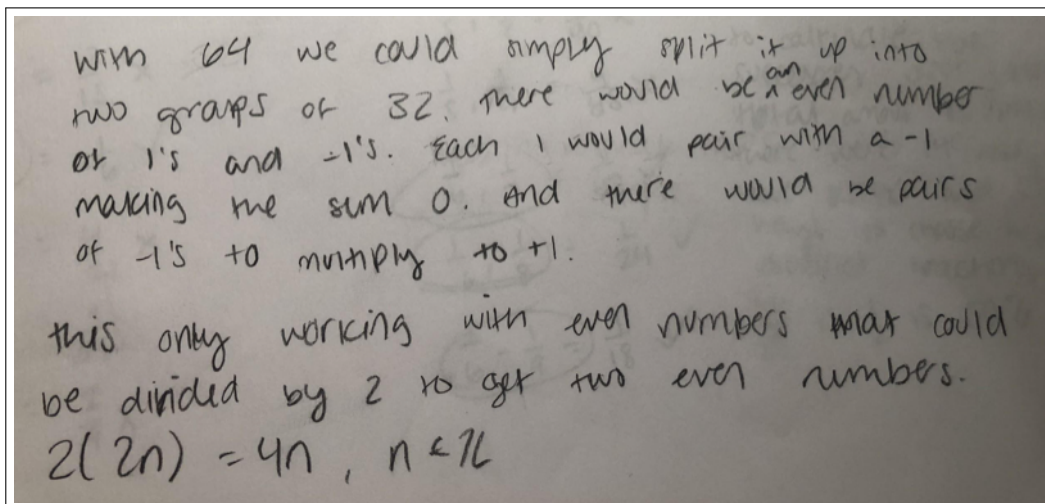 with 64 we could simply split it up into
two groups of 32. There would be an even number
of 1's and -1's. Each 1 would pair with a -1
making the sum 0. And there would be pairs
of -1's to multiply to +1.
this only working with even numbers that could
be divided by 2 to get two even numbers.
2(2n) = 4n, n ∈ ℤ